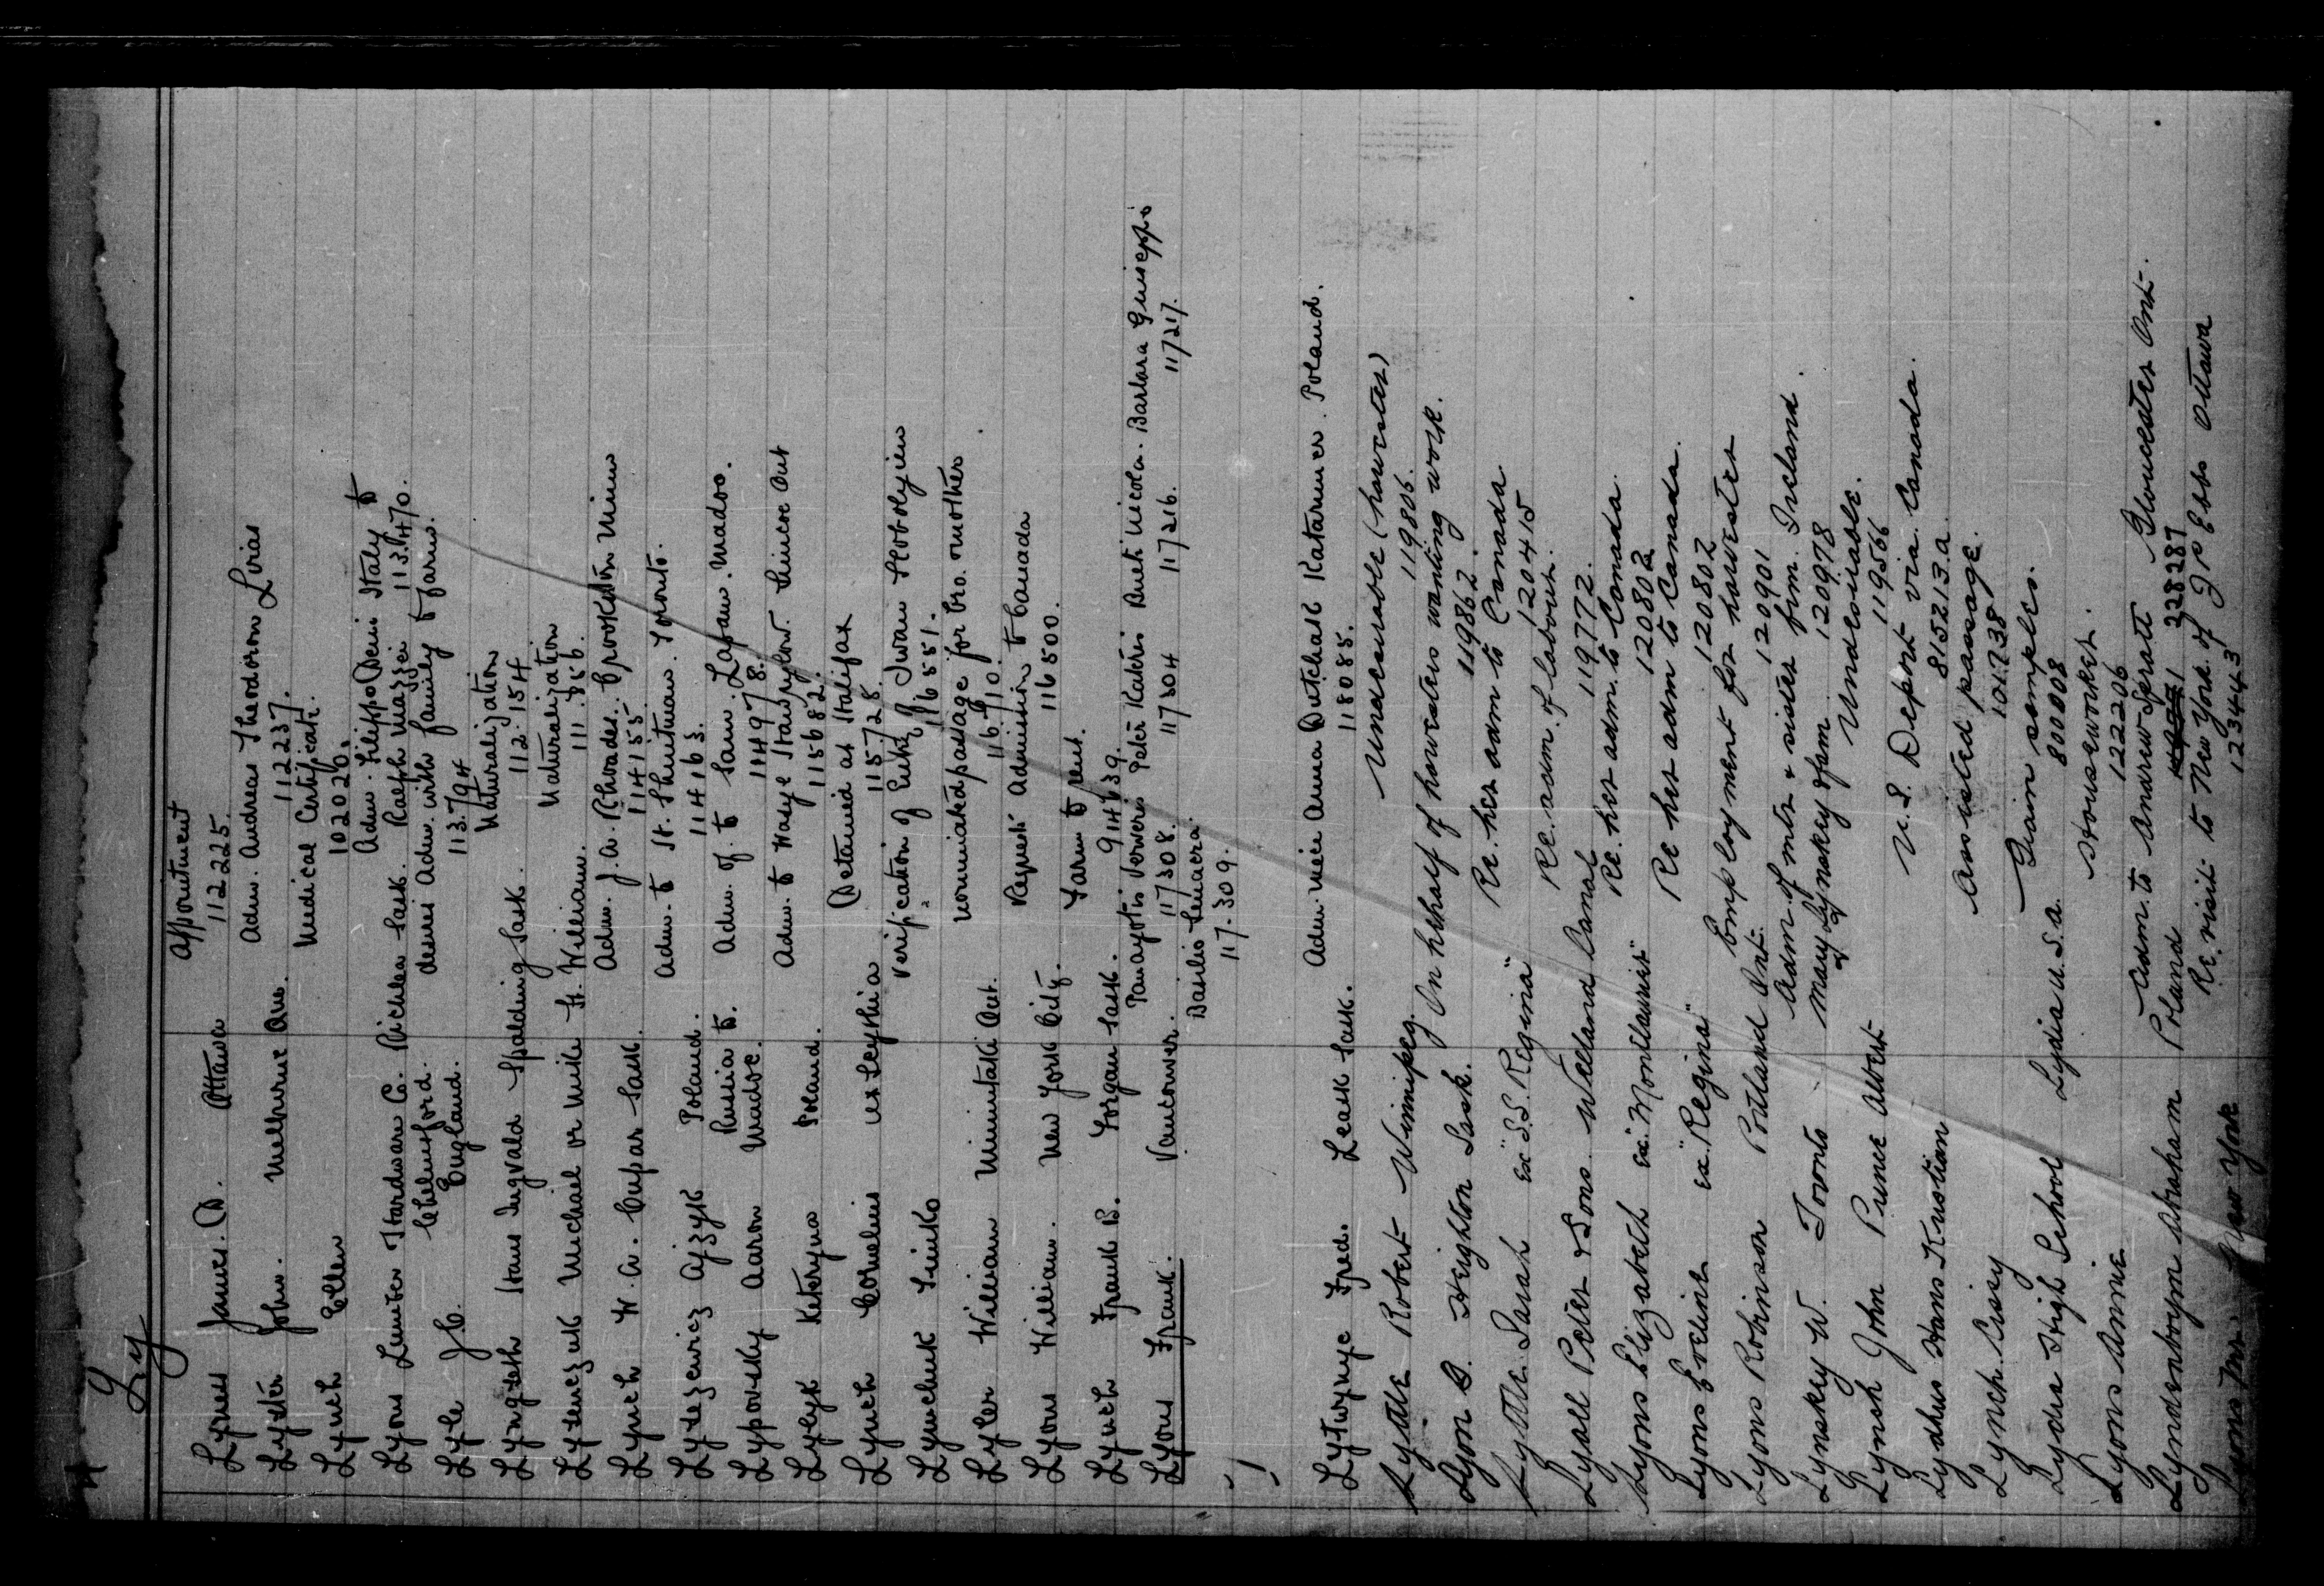 Ly
Lynes James. D. Ottawa appointment
112225.
Lyster John. Melburne Que. Adm. Andreas Theodoron Livias
112237.
Lynch Ellen Medical Certificate.
102020.
Lyons Lumber Hardware Co. Richlea Sask. Adm. Filippo Deini Italy to
Ralph Mazzei 113.470.
Lyle J.C. Chelmsford. England. desires Adm. with family to farm.
113.794
Lyngseth Hans Ingvald Spalding Sask. Naturalization
112.154
Lytenczuk Michael or Mike Ft. William. Naturalization
111.856.
Lynch W.A. Cupar Sask. Adm. J.A. Rhoades. Crookston Minn
114155
Lytezewicz Ajzyk Poland. Adm. to H. Shuitman. Toronto.
114163.
Lyporsky Aaron Russia to Madoc. Adm. of to Sam. Lapam. Madoc.
114978.
Lylyk Kateryna Poland. Adm. to Wasyl Hawrylow. Simcoe Ont
115682.
Lynch Cornelius ex Scythia Detained at Halifax
115728.
Lynchuk Simko Verification of Entry of Iwan Hobolyiw
116551.
Lyler William Minnitaki Ont. nominated passage for bro. mother
116710.
Lyons William. New York City. Request admission to Canada
116500.
Lynch Frank B. Forgan Sask. Farm to rent.
914639.
Lyons Frank. Vancouver. Panayotis Ververis Peter Katevis Bueti Nicola. Barbara Guiseppi
117308. 117304 117216. 117217.
Basilis
117.309.
Lytwynye Fred. Leask Sask. Adm. niece Anna Dutchak Katarunce. Poland.
118085.
Lyttle Robert Winnipeg. Undesirable (harvester)
119806.
Lyon D. Heighton Sask. On behalf of harvesters wanting work.
119862.
Lyttle Sarah ex "S.S. Regina" Re. her adm to Canada
120415
Lyall Peter & Sons. Welland Canal Re. adm. of labour.
119772.
Lyons Elizabeth ex. "Montlaurier" Re. her adm. to Canada.
120802
Lyons Eveline ex "Regina" Re her adm to Canada.
120802
Lyons Robinson Portland Ont. Employment for harvester
120901
Lynskey W. Toronto Adm. of mother & sister from Ireland.
Mary Lynskey & fam 120978
Lynsh John Prince Albert Undesirable.
119566
Lydhus Hans Kristian U.S. Deport via Canada.
815213.a.
Lynch Cissy Assisted passage.
101738
Lydia High School Lydia U.S.A. Grain samples.
800008
Lyons Annie Houseworker.
122206
Lyndenbojm Abraham Poland Adm. to Andrew Spratt Gloucester Ont.
228287
Lyons Mr. New York Re. visit to New York of J P Ebbs Ottawa
123443